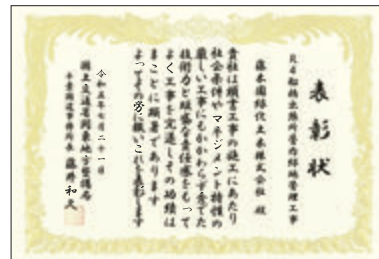 表彰状
R4船橋出張所管内緑地管理工事
藤木園緑化土木株式会社 殿
貴社は頭書工事の施工にあたり
社会条件やマネジメント特性の
厳しい工事にもかかわらず優れた
技術力と旺盛な責任感をもって
よく工事を完遂しその功績は
まことに顕著であります
よってその労に報いこれを表彰します
令和五年七月二十一日
国土交通省関東地方整備局
千葉国道事務所長 藤井和久